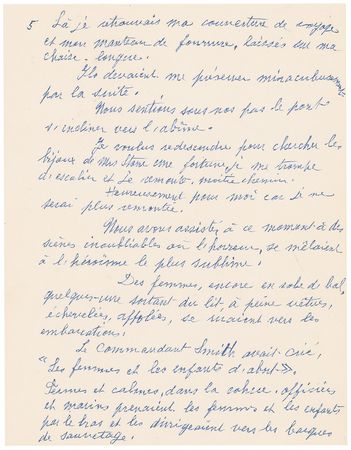 5 Là je retrouvais ma couverture de voyage
et mon manteau de fourrure, laissés sur ma
chaise-longue.
Ils devaient me préserver miraculeusement
par la suite.
Nous sentions sous nos pas le pont
s'incliner vers l'abîme.
Je voulus redescendre pour chercher les
bijoux de Mrs Stone une fortune, je me trompe
d'escalier et je remonte, moitié chemin.
Heureusement pour moi car je ne
serai plus remontée.
Nous avons assistés, à ce moment à des
scènes inoubliables où l'horreur, se mêlaient
à l'héroïsme le plus sublime.
Des femmes, encore en robe de bal,
quelques-une sortant du lit, à peine vêtues,
échevelées, affolées, se ruaient vers les
embarcations.
Le Commandant Smith avait crié,
"Les femmes et les enfants d'abord".
Fermes et calmes, dans la cohue, officiers
et marins prenaient les femmes et les enfants
par le bras et les dirigeaient vers les barques
de sauvetage.